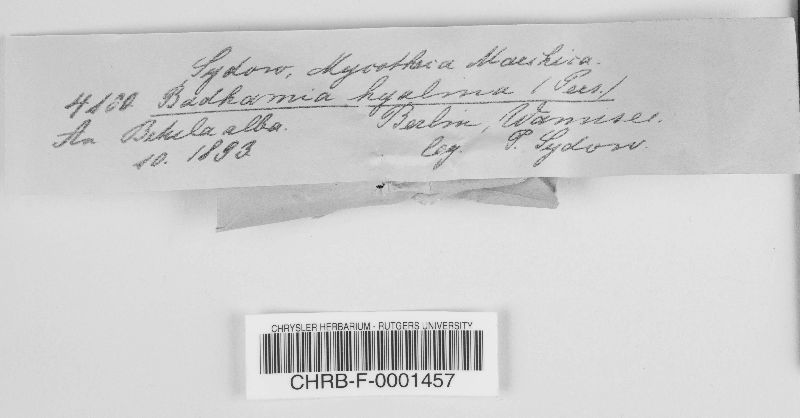 Sydow, Mycotheca Marchica.
4100 Badhamia hyalina (Pers.)
An Betula alba. Berlin, Wannsee.
10. 1893 leg. P. Sydow.
CHRYSLER HERBARIUM - RUTGERS UNIVERSITY
CHRB-F-0001457